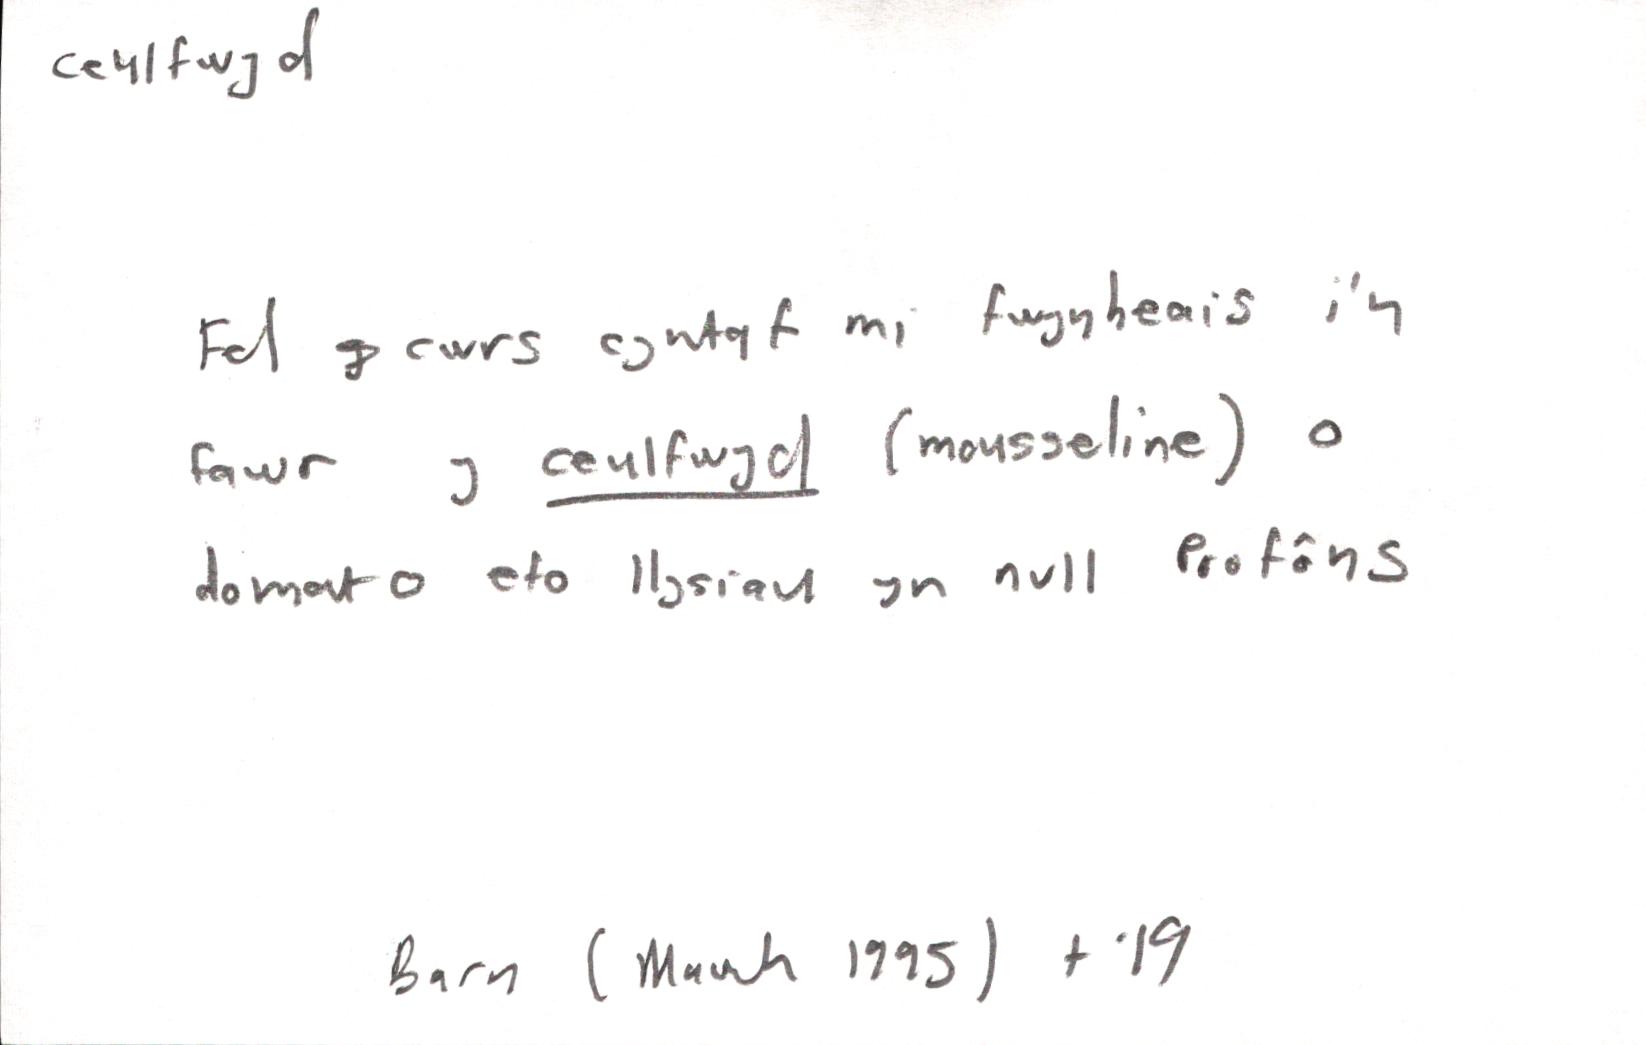 ceulfwyd
Fel y cwrs cyntaf mi fwynheais i'n
fawr y ceulfwyd (mousseline) o
domato efo llysiau yn null Profâns
Barn (March 1995) t.19